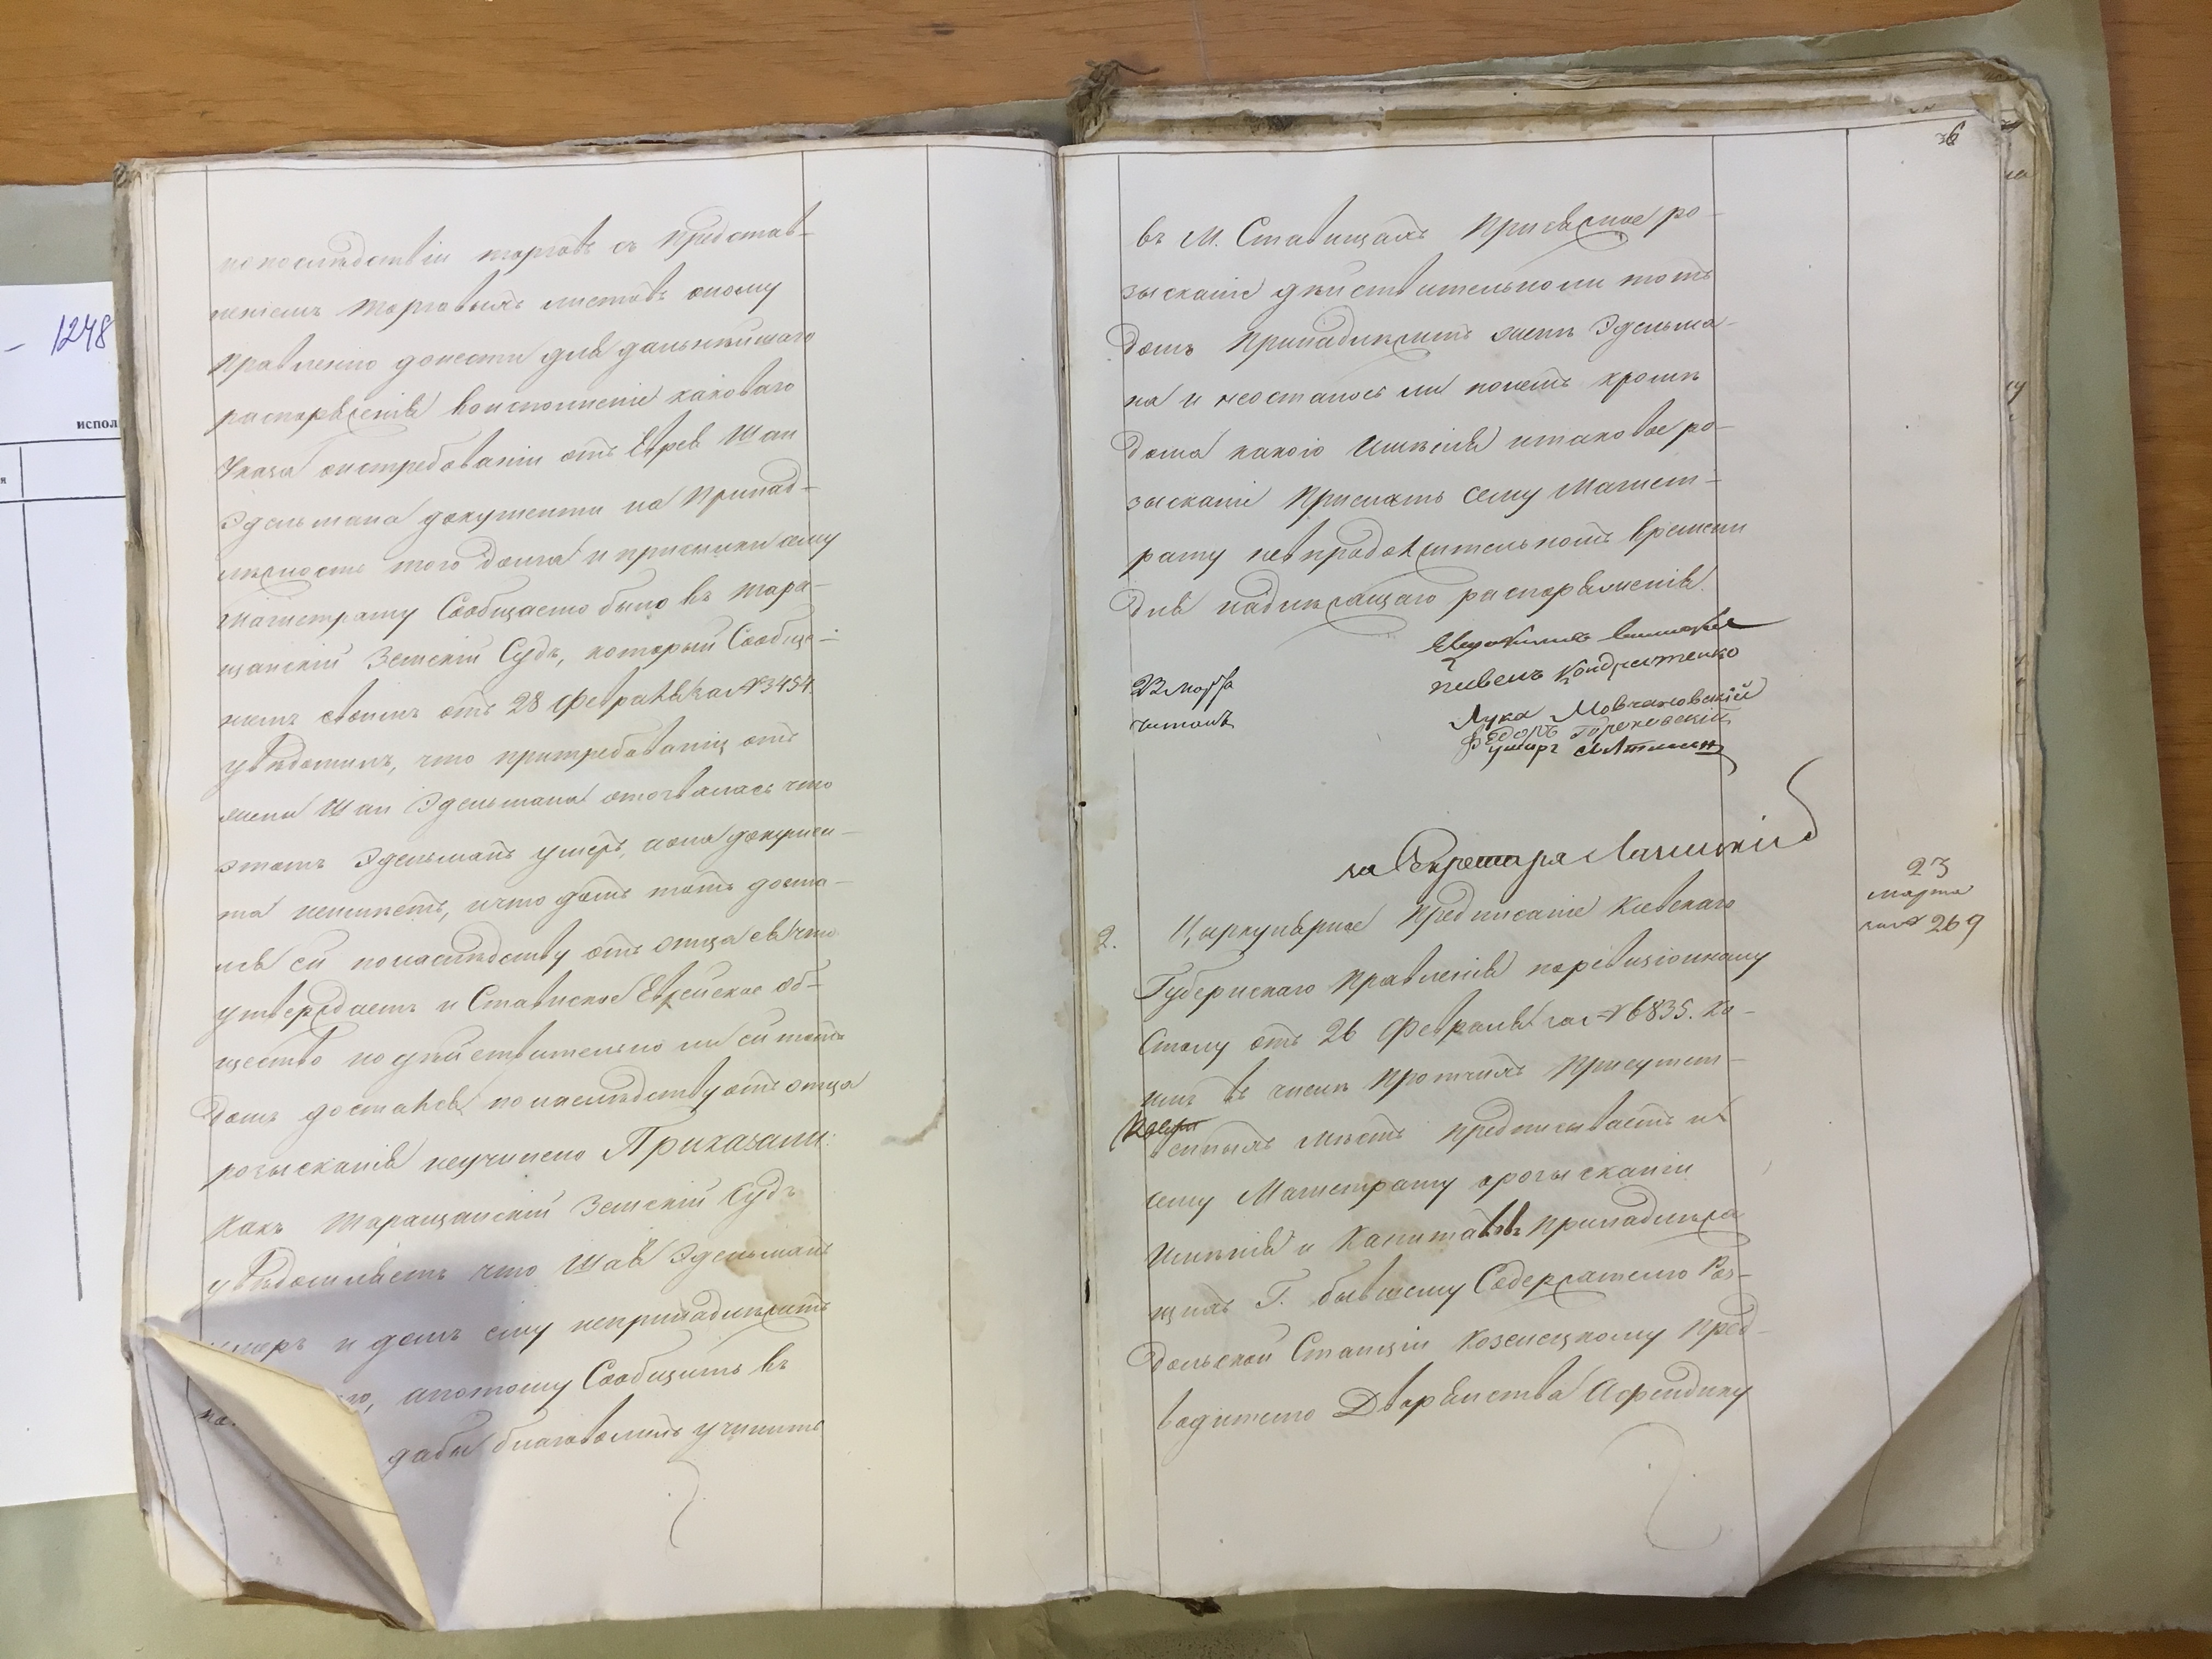 1248
испол
я
по последствіи торговъ съ представ-
леніемъ торговыхъ листовъ оному
правленію донести для дальнѣйшаго
распоряженія воисполненіе каковаго
Указа оистребованіи отъ Еврея Шаи
Эдельмана документы на принад-
лежность того дома и присылки сему
Магистрату Сообщаемо было въ Тара-
щанскій Земскій Судъ, который Сообще-
ніемъ своимъ отъ 28 февраля за № 3454
увѣдомилъ, что притребованіи отъ
жены Шаи Эдельмана отозвалась что
этотъ Эдельманъ умеръ, аона докумен-
та неимѣетъ, ичто домъ тотъ доста-
лся ей понаслѣдству отъ отца ея что
утверждаетъ и Ставиское Еврейское об-
щество но дѣйствительно ли ей тотъ
домъ достался понаслѣдству отъ отца
розысканія неучинено Приказали:
Какъ Таращанскій Земскій Судъ
увѣдомляетъ что Шая Эдельманъ
умеръ и домъ ему непринадлежитъ
апотому Сообщить въ
дабы благоволилъ учинить
36
въ М. Ставищахъ присяжное ро-
зысканіе дѣйствительноли тотъ
домъ принадлежитъ женѣ Эдельма-
на и неосталось ли понемъ кромѣ
дома какого имѣнія итаковое ро-
зысканіе прислать сему Магист-
рату невпродолжительномъ времени
для надлежащаго распоряженія.
Кондратенко
22 марта
читалъ
Лука Мовчановскій
Федоръ Гороховскій
за Секретаря
23
марта
за № 269
2. Циркулярное предписаніе Кіевскаго
Губернскаго Правленія поревизіонному
Столу отъ 26 февраля за № 6835. Ко-
имъ въ числѣ протчихъ присутст-
венныхъ мѣстъ предписываетъ и
сему Магистрату орозысканіи
имѣнія и капиталовъ принадлежа
щихъ Г. бывшему Содержателю Роз-
дольской Станціи Козелецкому пред-
водителю Дворянства Афендику